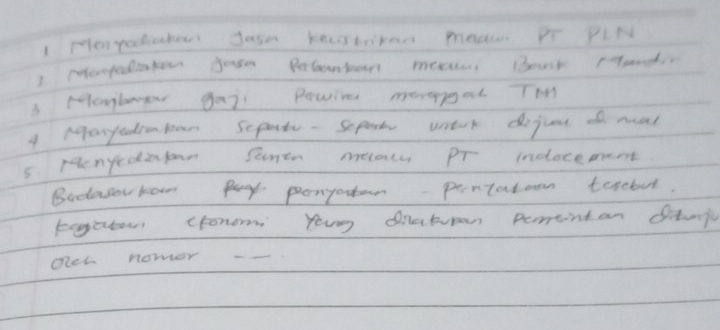 1 Menyediakan jasa kelistrikan melalui PT PLN
2 Menyediakan jasa Perbankan melalui Bank Mandiri
3 Membayar gaji Perwira TNI
4 Menyediakan sepatu - sepatu untuk dijual di mal
5 Menyediakan Semen melalui PT indocement.
Berdasarkan pernyataan - pernyataan tersebut.
kegiatan ekonomi Yang dilakukan Pemerintah ditunju
oleh nomor ---.